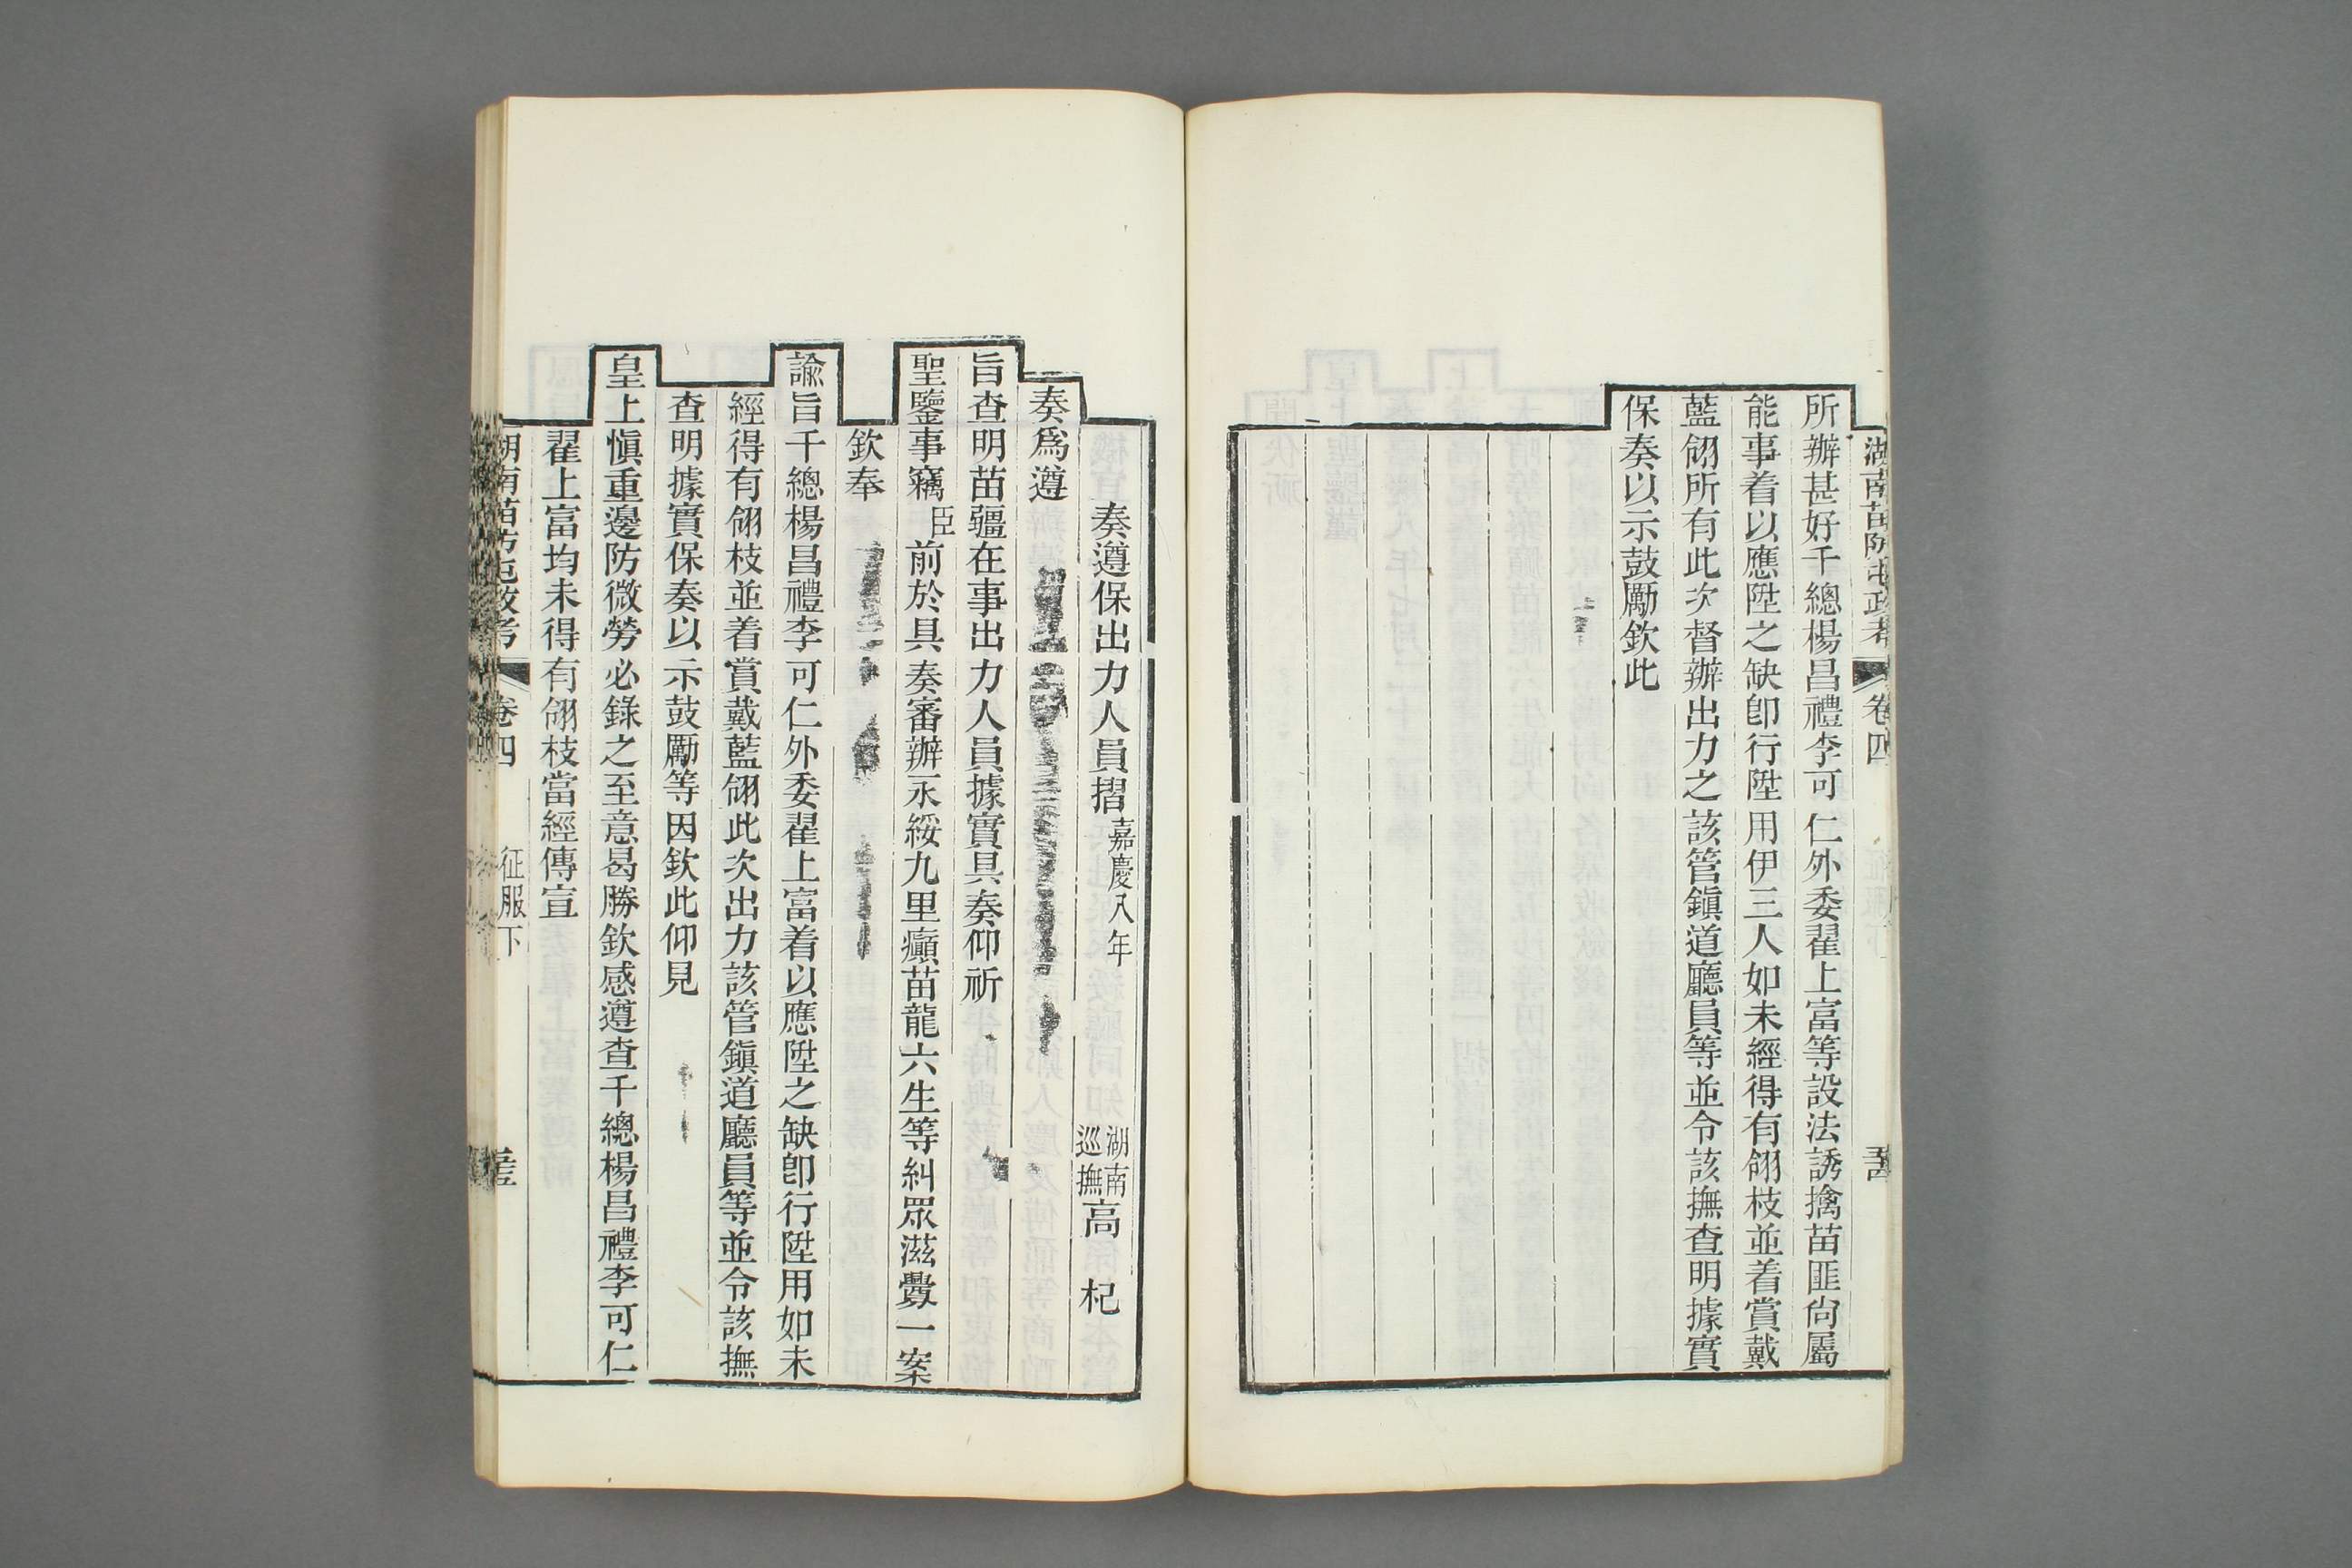 湖南苗防屯政考 卷四
所辦甚好千總楊昌禮李可仁外委翟上富等設法誘擒苗匪尙屬
能事着以應陞之缺卽行陞用伊三人如未經得有翎枝並着賞戴
藍翎所有此次督辦出力之該管鎭道廳員等並令該撫查明據實
保奏以示鼓勵欽此
奏遵保出力人員摺嘉慶八年 湖南巡撫高 杞
奏爲遵
旨查明苗疆在事出力人員據實具奏仰祈
聖鑒事竊臣前於具奏審辦永綏九里癲苗龍六生等糾眾滋釁一案
欽奉
諭旨千總楊昌禮李可仁外委翟上富着以應陞之缺卽行陞用如未
經得有翎枝並着賞戴藍翎此次出力該管鎭道廳員等並令該撫
查明據實保奏以示鼓勵等因欽此仰見
皇上愼重邊防微勞必錄之至意曷勝欽感遵查千總楊昌禮李可仁
翟上富均未得有翎枝當經傳宣
湖南苗防屯政考 卷四 征服下